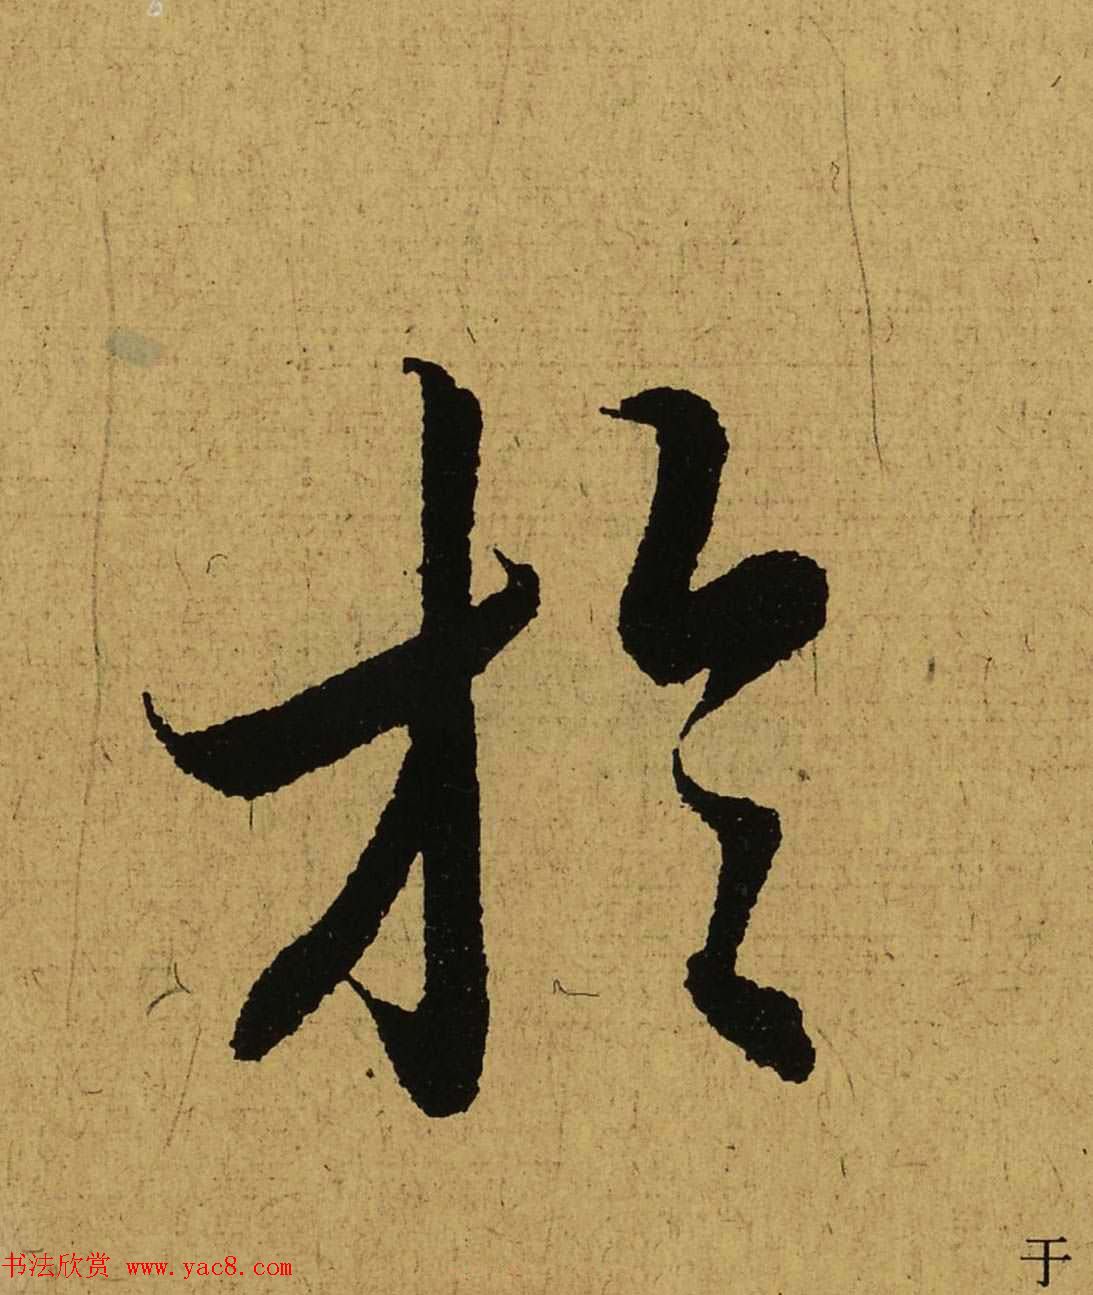 於
于
书法欣赏 www.yac8.com